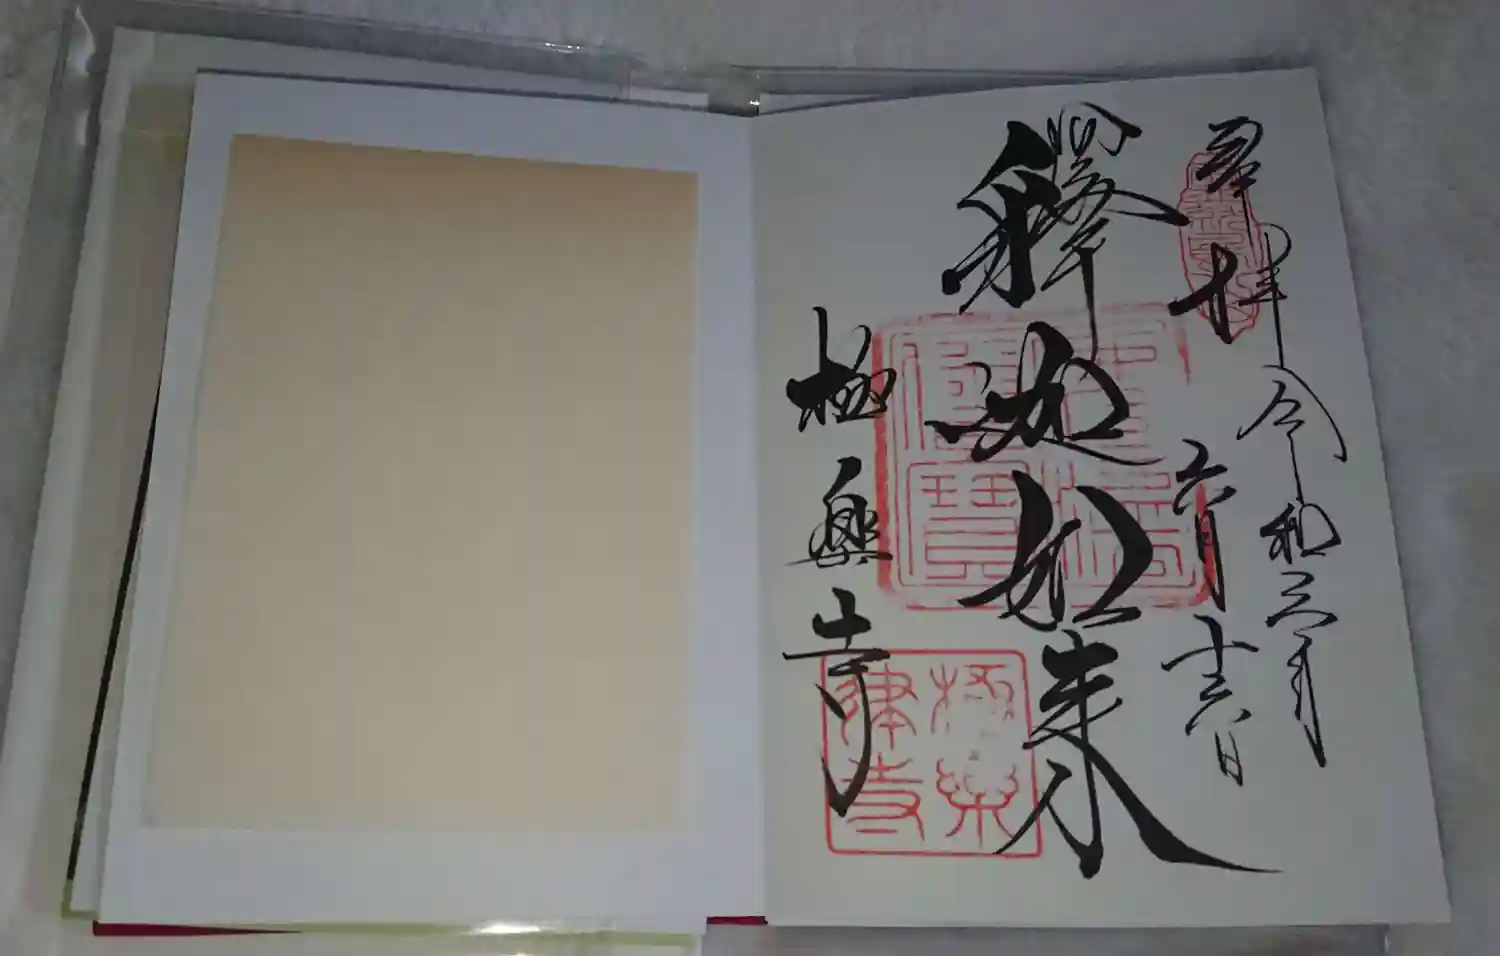 奉拝
令和三年
六月十六日
釋迦如来
極樂寺
極樂律寺